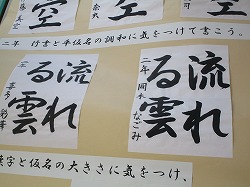 空
空
二年 行書と平仮名の調和に気をつけて書こう。
流れ
る雲
二年 岡本 なごみ
流れ
る雲
漢字と仮名の大きさに気をつけ、